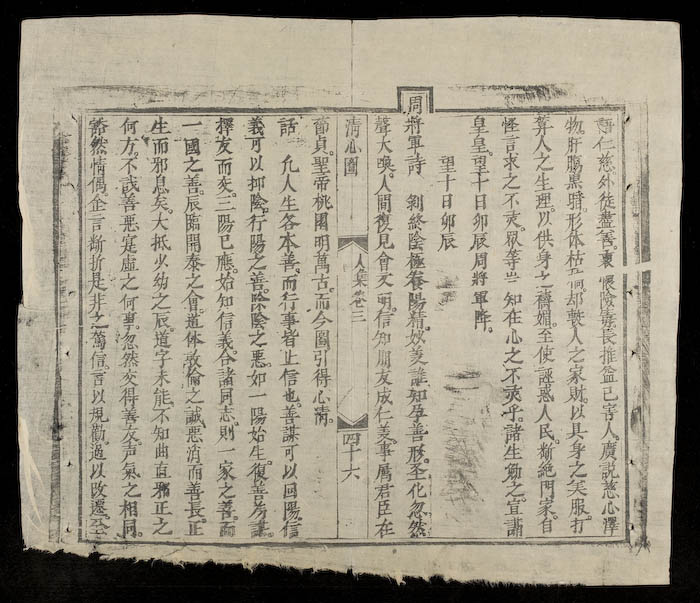 語仁慈外徒盡善衷懷險毒長推益已字人廣説慈心澤
物肝膓黑暗形体枯却人之家財以具身之美服打
算人之生理以供身之媚至使誣惑人民斷絶門家自
怪言求之不爽眾等豈知在心之不爽乎諸生勉之宜誦
皇皇望十日卯辰周將軍降
望十日卯辰
周
將軍詩 剝終陰極養陽精姤美誰知孕善形圣化忽然
聲大喚人間復見會文明信知朋友成仁美事屬君臣在
清心圖 人集卷三 四十六
舊貞聖帝桃園明萬古而今圖引得心清
話 凡人生各本善而行事皆止信也善謀可以回陽信
義可以抑陰行陽之善除陰之惡如一陽始生復善易謹
擇友而交三陽已應始知信義合諸同志則一家之善而
一國之善辰臨開泰之會道体敦倫之誠惡消而善長正
生而邪息矣大抵少幼之辰道字未能不知曲直邪正之
何方不識善惡寔虛之何忽然交得善友声氣之相同
豁然情偶企言斷折是非之篤信言以規勸過以改遷至